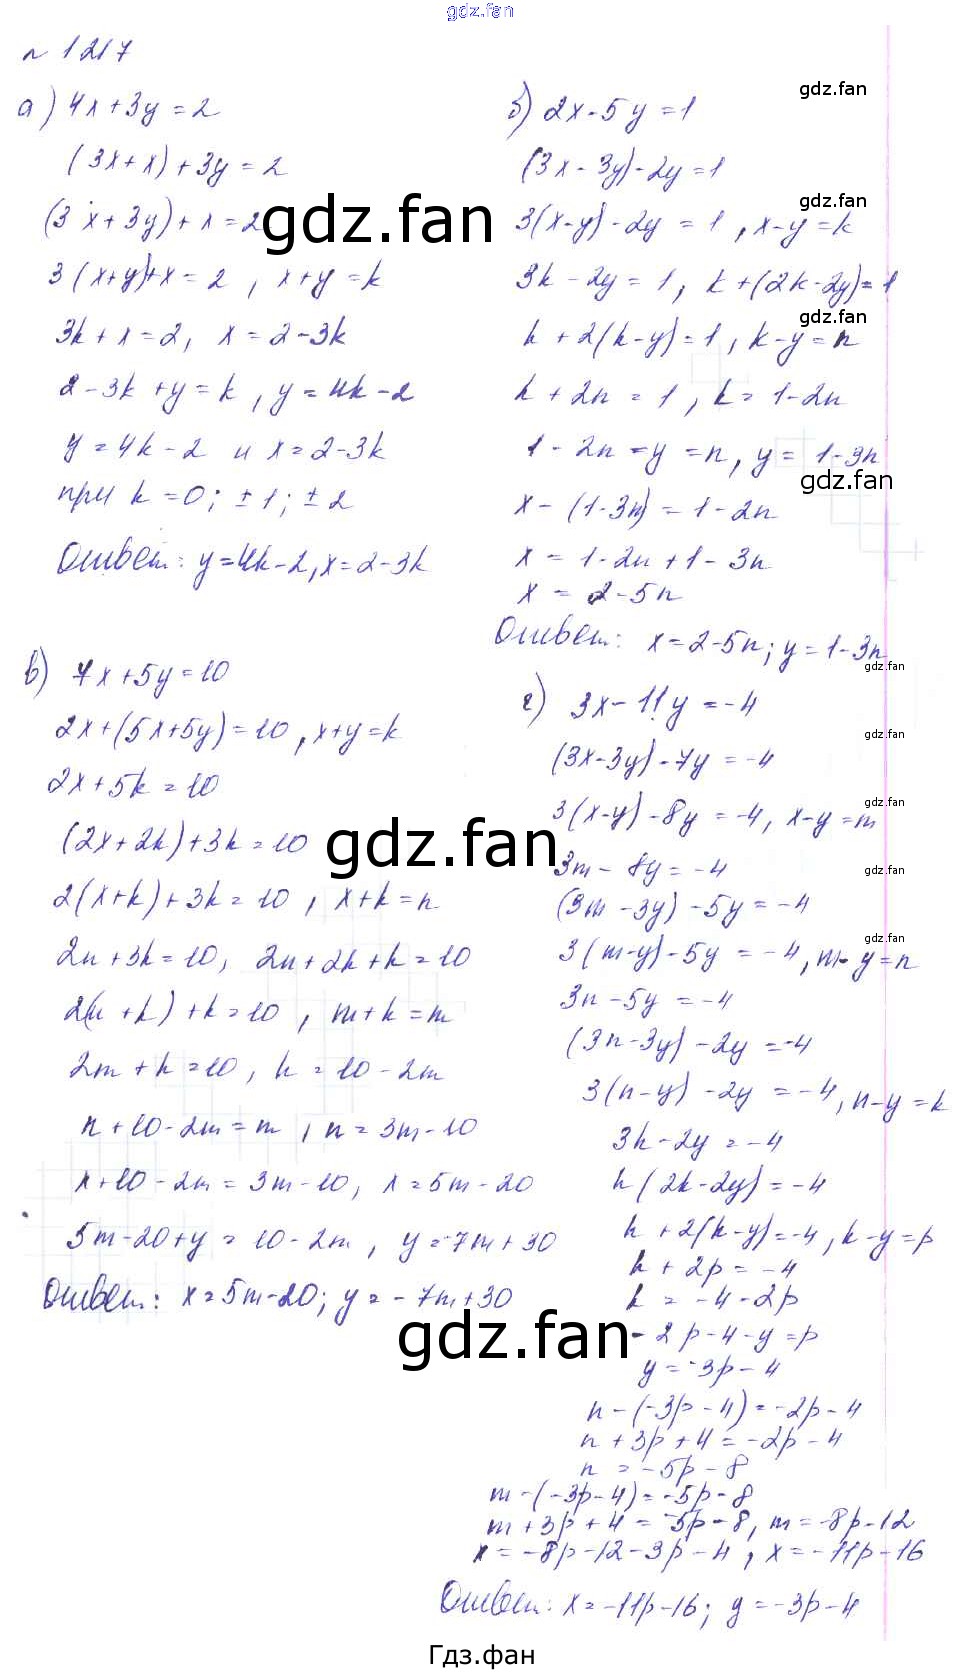 gdz.fan
n 1217
а) 4x+3y=2
(3x+x)+3y=2
(3x+3y)+x=2
3(x+y)+x=2, x+y=k
3k+x=2, x=2-3k
2-3k+y=k, y=4k-2
y=4k-2 и x=2-3k
при k=0; ±1; ±2
Ответ: y=4k-2, x=2-3k
gdz.fan
б) 2x-5y=1
gdz.fan
(3x-3y)-2y=1
gdz.fan
3(x-y)-2y=1, x-y=k
3k-2y=1, k+(2k-2y)=1
gdz.fan
k+2(k-y)=1, k-y=n
k+2n=1, k=1-2n
1-2n-y=n, y=1-3n
gdz.fan
x-(1-3n)=1-2n
x=1-2n+1-3n
x=2-5n
Ответ: x=2-5n; y=1-3n
gdz.fan
в) 7x+5y=10
2x+(5x+5y)=10, x+y=k
2x+5k=10
(2x+2k)+3k=10
gdz.fan
2(x+k)+3k=10, x+k=n
2n+3k=10, 2n+2k+k=10
2(n+k)+k=10, m+k=m
2m+k=10, k=10-2m
n+10-2m=m, n=3m-10
x+10-2m=3m-10, x=5m-20
5m-20+y=10-2m, y=-7m+30
Ответ: x=5m-20; y=-7m+30
gdz.fan
г) 3x-11y=-4
gdz.fan
(3x-3y)-7y=-4
gdz.fan
3(x-y)-8y=-4, x-y=m
3m-8y=-4
gdz.fan
(3m-3y)-5y=-4
gdz.fan
3(m-y)-5y=-4, m-y=n
3n-5y=-4
(3n-3y)-2y=-4
3(n-y)-2y=-4, n-y=k
3k-2y=-4
k(2k-2y)=-4
k+2(k-y)=-4, k-y=p
k+2p=-4
k=-4-2p
-2p-4-y=p
y=-3p-4
n-(-3p-4)=-2p-4
n+3p+4=-2p-4
n=-5p-8
m-(-3p-4)=-5p-8
m+3p+4=-5p-8, m=-8p-12
x=-8p-12-3p-4, x=-11p-16
Ответ: x=-11p-16; y=-3p-4
Гдз.фан